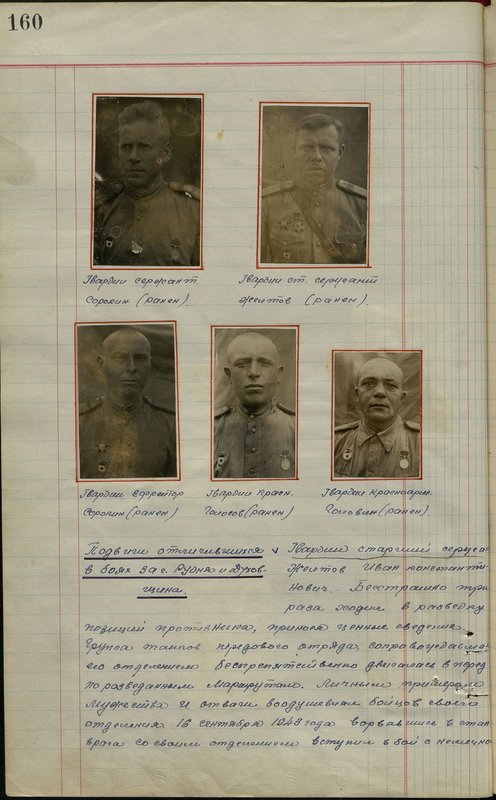 160
Гвардии сержант
Сорокин (ранен)
Гвардии ст. сержант
Жеитов (ранен)
Гвардии ефрейтор
Сорокин (ранен)
Гвардии красн.
Голосов (ранен)
Гвардии красноарм.
Головин (ранен).
Подвиги отличившихся
в боях за г. Рудня и Духов-
щина.
✓ Гвардии старший сержа
Жеитов Иван Константи-
нович. Бесстрашно три
раза ходил в разведку
позиций противника, принося ценные сведения.
Группа танков передового отряда, сопровождаемая
его отделением беспрепятственно двигалась вперед
по разведанным маршрутам. Личным примером
мужества и отваги воодушевлял бойцов своего
отделения 16 сентября 1943 года ворвавшись в стан
врага со своим отделением вступил в бой с немецко